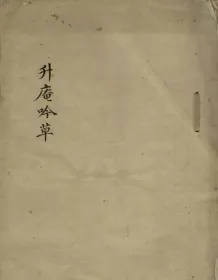 升庵吟草